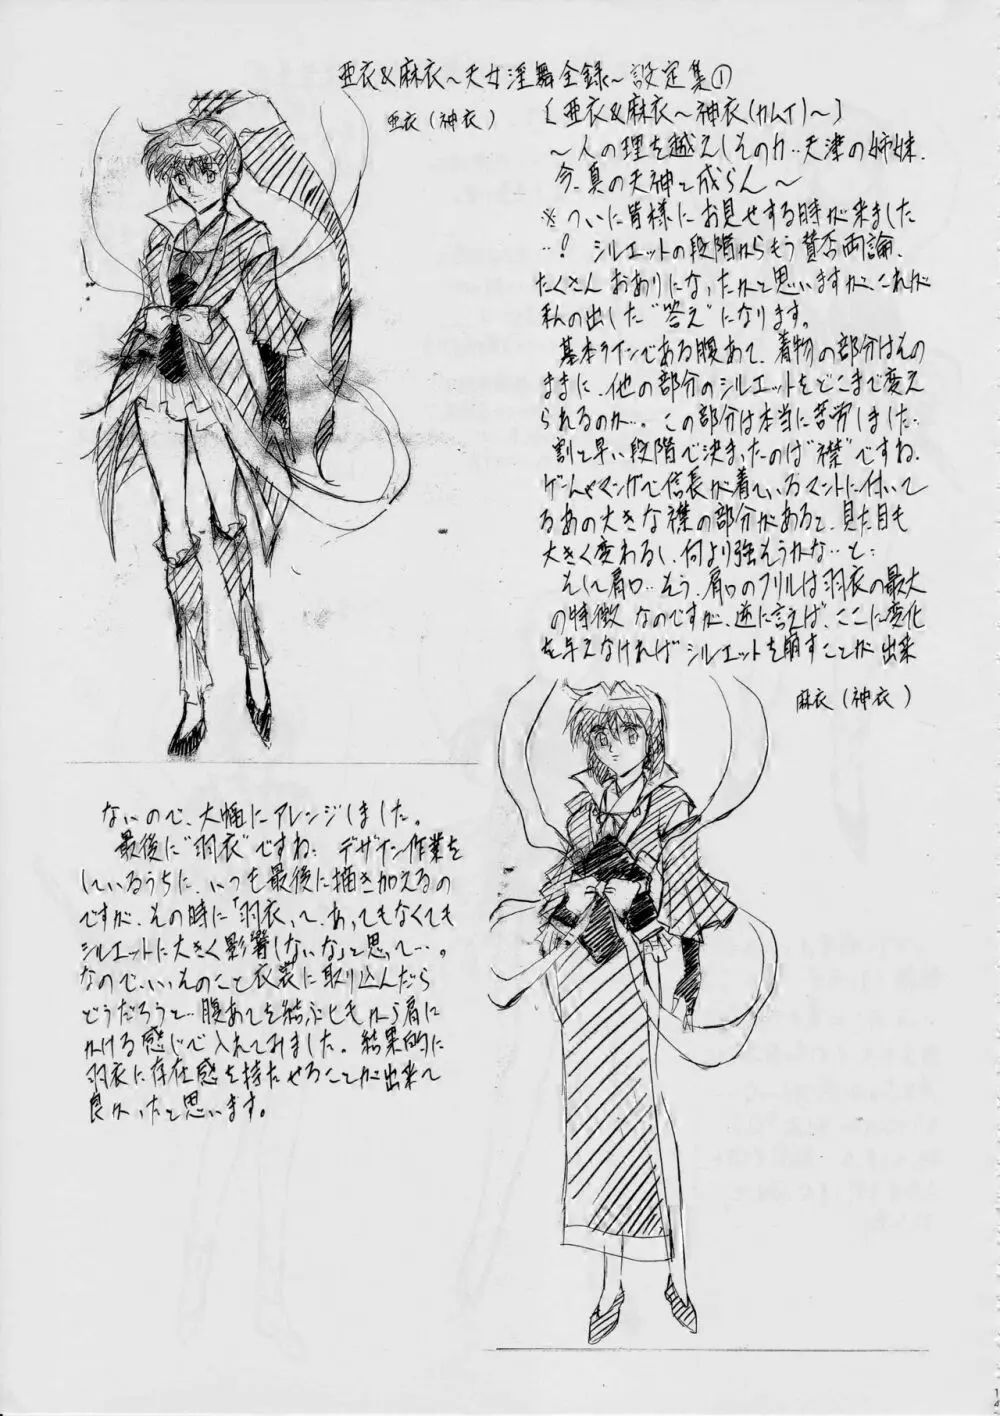 亜衣&麻衣~天女淫舞全録~設定集①
亜衣(神衣)
[亜衣&麻衣~神衣(カムイ)~]
~人の理を越えしその力‥天津の姉妹、
今、真の天神と成らん~
※ついに皆様にお見せする時が来ました
‥! シルエットの段階からもう賛否両論、
たくさんおありになったかと思いますが、これが
私の出した"答え"になります。
基本ラインである腹あて、着物の部分はその
ままに、他の部分のシルエットをどこまで変え
られるのか…。この部分は本当に苦労しました‥
割と早い段階で決まったのは"襟"ですね。
ゲームやマンガで信長が着ているマントに付いて
るあの大きな襟の部分があると、見た目も
大きく変わるし、何より強そうかな‥と‥
そして肩口‥そう、肩口のフリルは羽衣の最大
の特徴なのですが、逆に言えば、ここに変化
を与えなければシルエットを崩すことが出来
麻衣(神衣)
ないので、大幅にアレンジしました。
最後に"羽衣"ですね‥デザイン作業を
しているうちに、いつも最後に描き加えるの
ですが、その時に「羽衣って、あってもなくても
シルエットに大きく影響しないな」と思って…。
なので、いいそのこと衣装に取り込んだら
どうだろうと‥腹あてを結ぶヒモから肩に
かける感じで入れてみました。結果的に
羽衣に存在感を持たせることが出来て
良かったと思います。